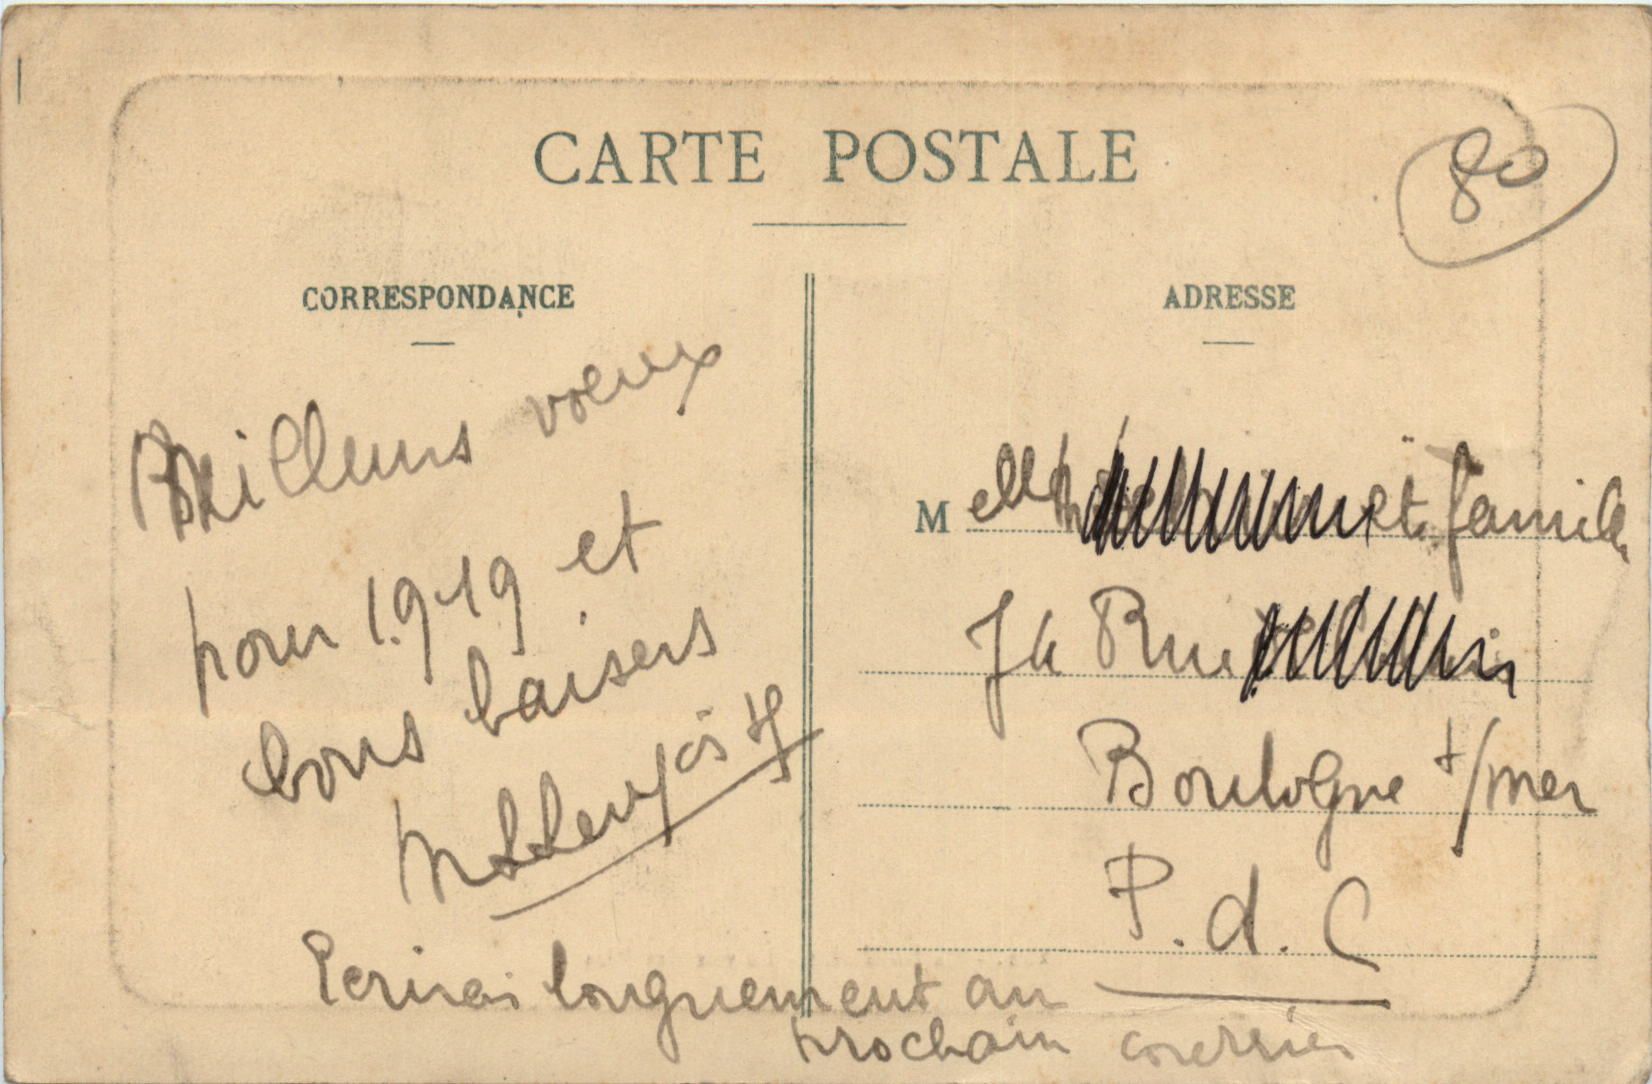 CARTE POSTALE
80
CORRESPONDANCE
Meilleurs voeux
pour 1.9.19 et
bons baisers
Ecrirai longuement au
prochain courrier
ADRESSE
M elle et famille
Rue
Boulogne s/mer
P. d. C